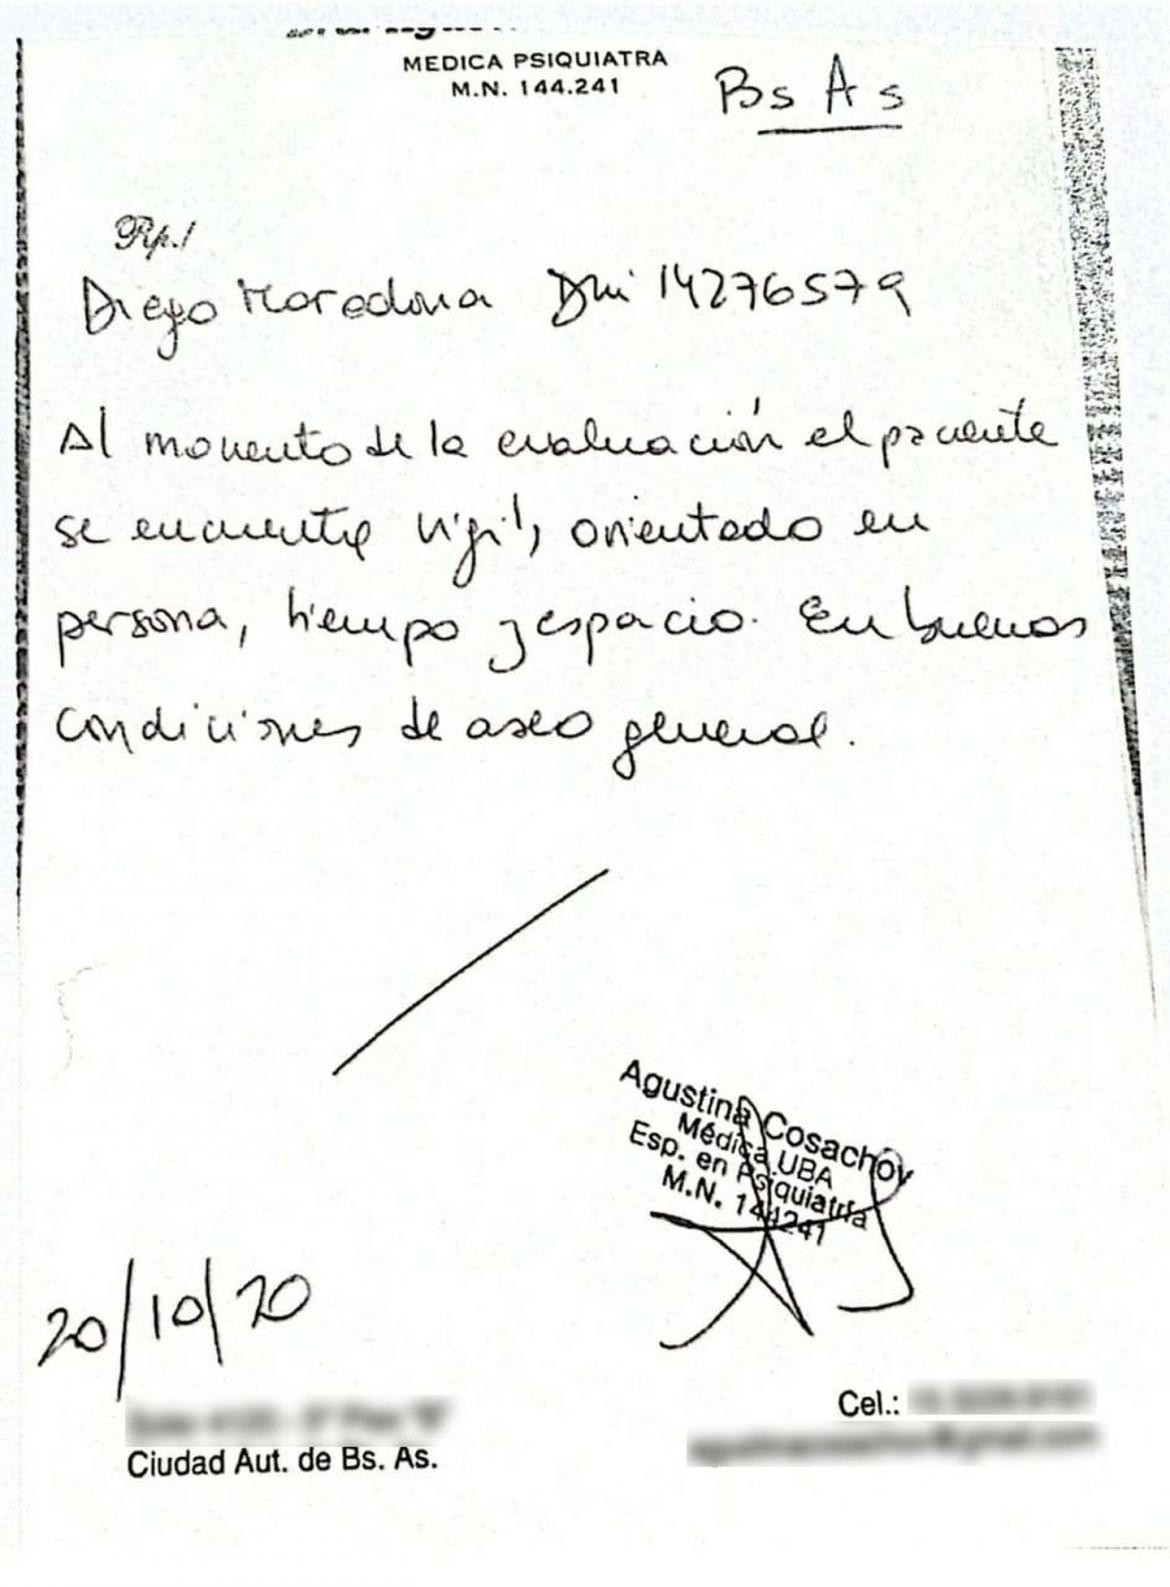 MEDICA PSIQUIATRA
M.N. 144.241
Bs As
Rp./
Diego Maradona Dni 14276579
Al momento de la evaluación el paciente
se encuentra vigil, orientado en
persona, tiempo y espacio. En buenas
condiciones de aseo general.
Agustina Cosachov
Médica UBA
Esp. en Psiquiatría
M.N. 144241
20/10/20
Cel.:
Ciudad Aut. de Bs. As.